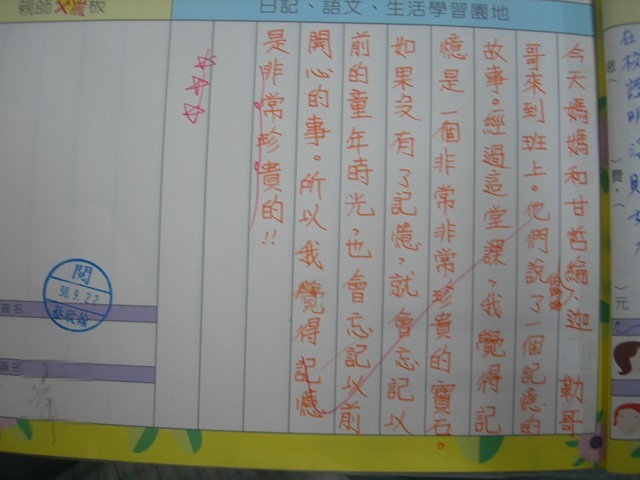 日記、語文、生活學習園地
今天媽媽和甘哲綸、迦勒哥
哥來到班上。他們說了一個記憶的
故事。經過這堂課，我覺得記
憶是一個非常非常珍貴的寶石。
如果沒有了記憶，就會忘記以
前的童年時光，也會忘記以前
開心的事。所以我覺得記憶
是非常珍貴的!!
親師交流板
閱
98.9.22
簽名
簽名
元